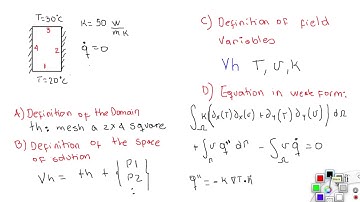 T=30°C
3
4
2
1
T=20°C
K=50 W/mK
q̇=0
A) Definition of the Domain
th: mesh a 2x4 square
B) Definition of the space
of solution
Vh = th + { P1
P2
:
C) Definition of field
Variables
Vh T, v, K
D) Equation in weak form:
∫Ω K(∂x(T)∂x(v) + ∂y(T)∂y(v)) dΩ
+ ∫Ω v q" dΩ - ∫Ω v q̇ = 0
q" = -K ∇T·n̂